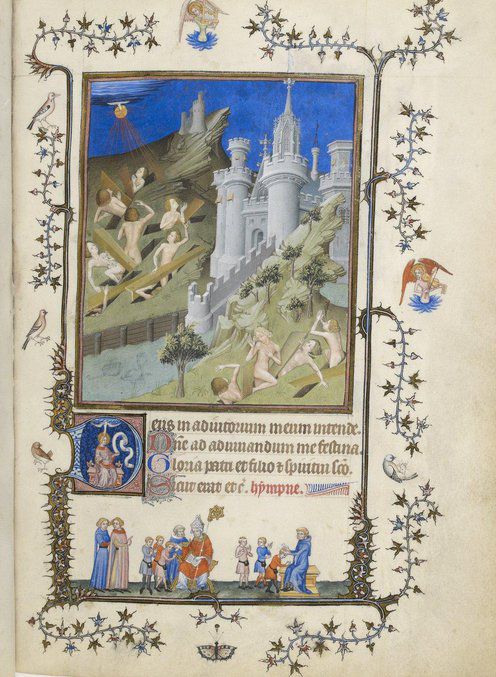 Deus in adiutorium meum intende.
Dñe ad adiuuandum me festina.
Gloria patri et filio ⁊ spiritui sc̃o.
Sicut erat et c̃. hympne.